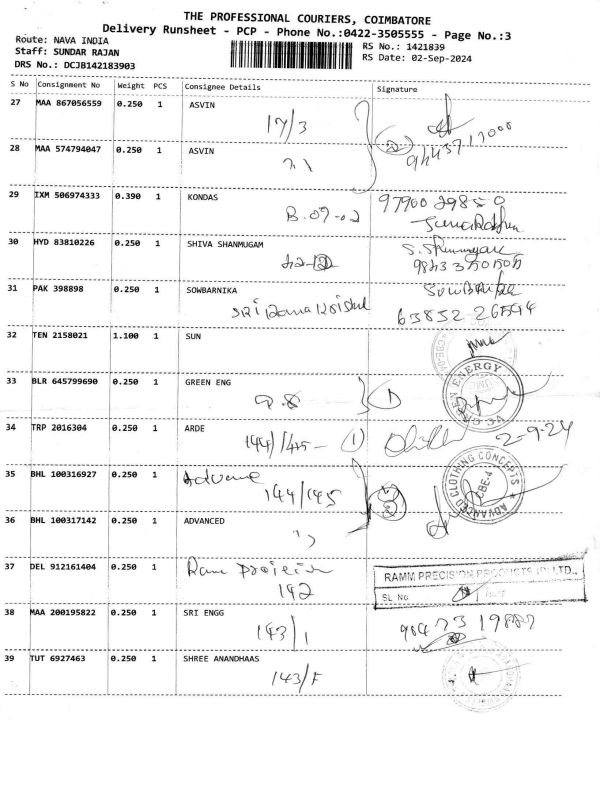 THE PROFESSIONAL COURIERS, COIMBATORE
Delivery Runsheet - PCP - Phone No.:0422-3505555 - Page No.:3
Route: NAVA INDIA
Staff: SUNDAR RAJAN
DRS No.: DCJB142183903
RS No.: 1421839
RS Date: 02-Sep-2024
S No Consignment No Weight PCS Consignee Details Signature
27 MAA 867056559 0.250 1 ASVIN
17/3
28 MAA 574794047 0.250 1 ASVIN
2
29 IXM 506974333 0.390 1 KONDAS
B.07-02
30 HYD 83810226 0.250 1 SHIVA SHANMUGAM
31 PAK 398898 0.250 1 SOWBARNIKA
63832 26594
32 TEN 2158021 1.100 1 SUN
33 BLR 645799690 0.250 1 GREEN ENG
1
VCE ENERGY
34 TRP 2016304 0.250 1 ARDE
144/145 1 2-9-24
35 BHL 100316927 0.250 1 Advance
144/145
ADVANCED CLOTHING CONCEPTS
CBE-4
36 BHL 100317142 0.250 1 ADVANCED
37 DEL 912161404 0.250 1 Ram
142
RAMM PRECISION PRODUCTS (P) LTD.,
SL No
38 MAA 200195822 0.250 1 SRI ENGG
143/1
39 TUT 6927463 0.250 1 SHREE ANANDHAAS
143/F